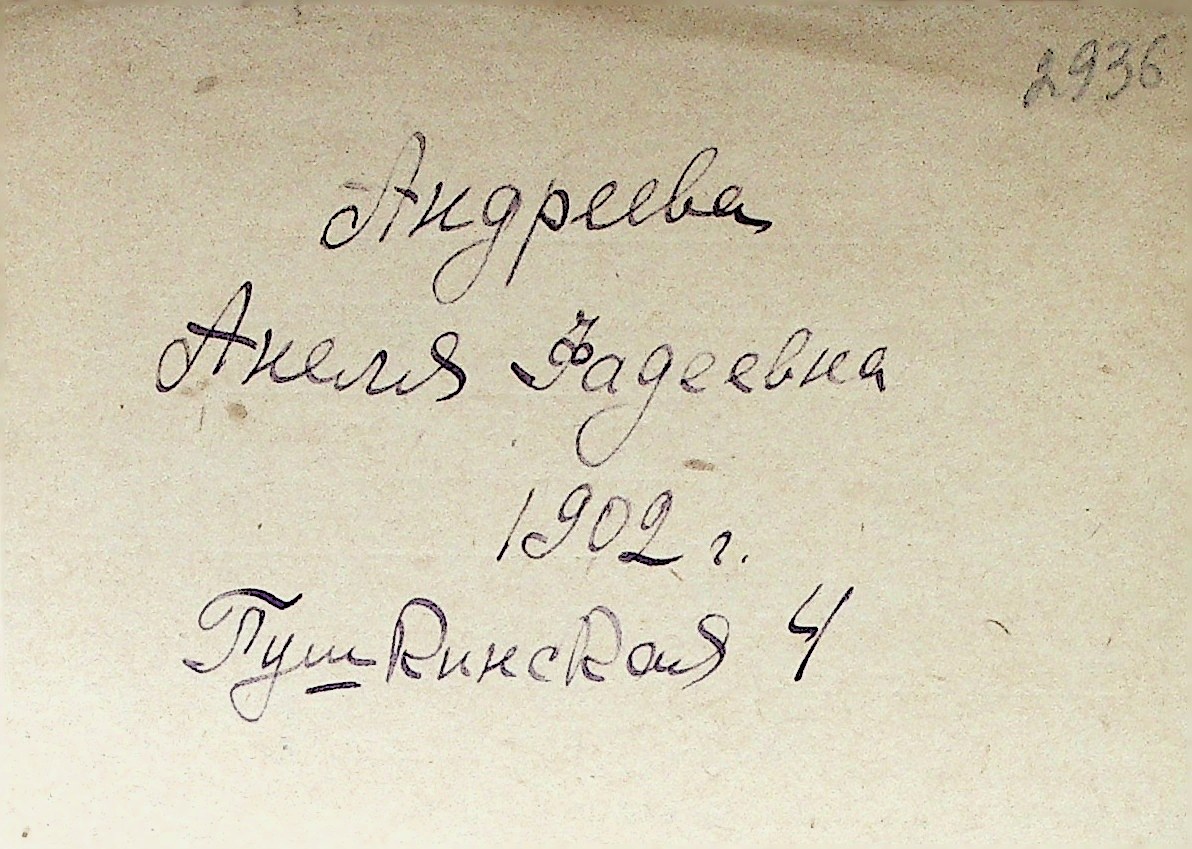 2936
Андреева
Анеля Фадеевна
1902 г.
Пушкинская 4